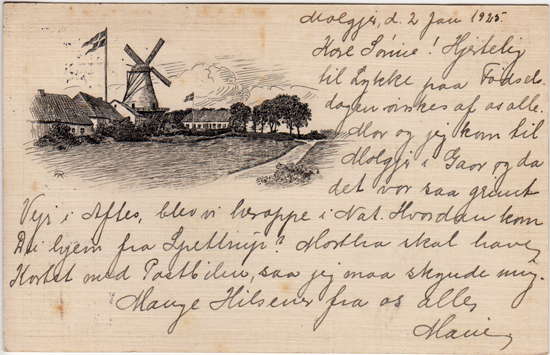 Molgjer, d. 2 Jan 1925.
Kære Sønnie! Hjertelig
til Lykke paa Fødsels-
dagen ønskes af os alle.
Mor og jeg kom til
Molgjer i Gaar og da
det var saa grimt
Vejr i Aftes, blev vi heroppe i Nat. Hvordan kom
Du hjem fra Spøttrup? Martha skal have
Kortet med Postbilen, saa jeg maa skynde mig.
Mange Hilsener fra os alle,
Marie